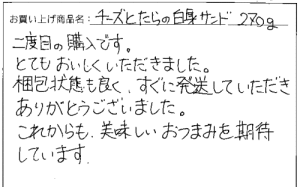 お買い上げ商品名：チーズとたらの白身サンド 270g
二度目の購入です。
とてもおいしくいただきました。
梱包状態も良く、すぐに発送していただき
ありがとうございました。
これからも、美味しいおつまみを期待
しています。